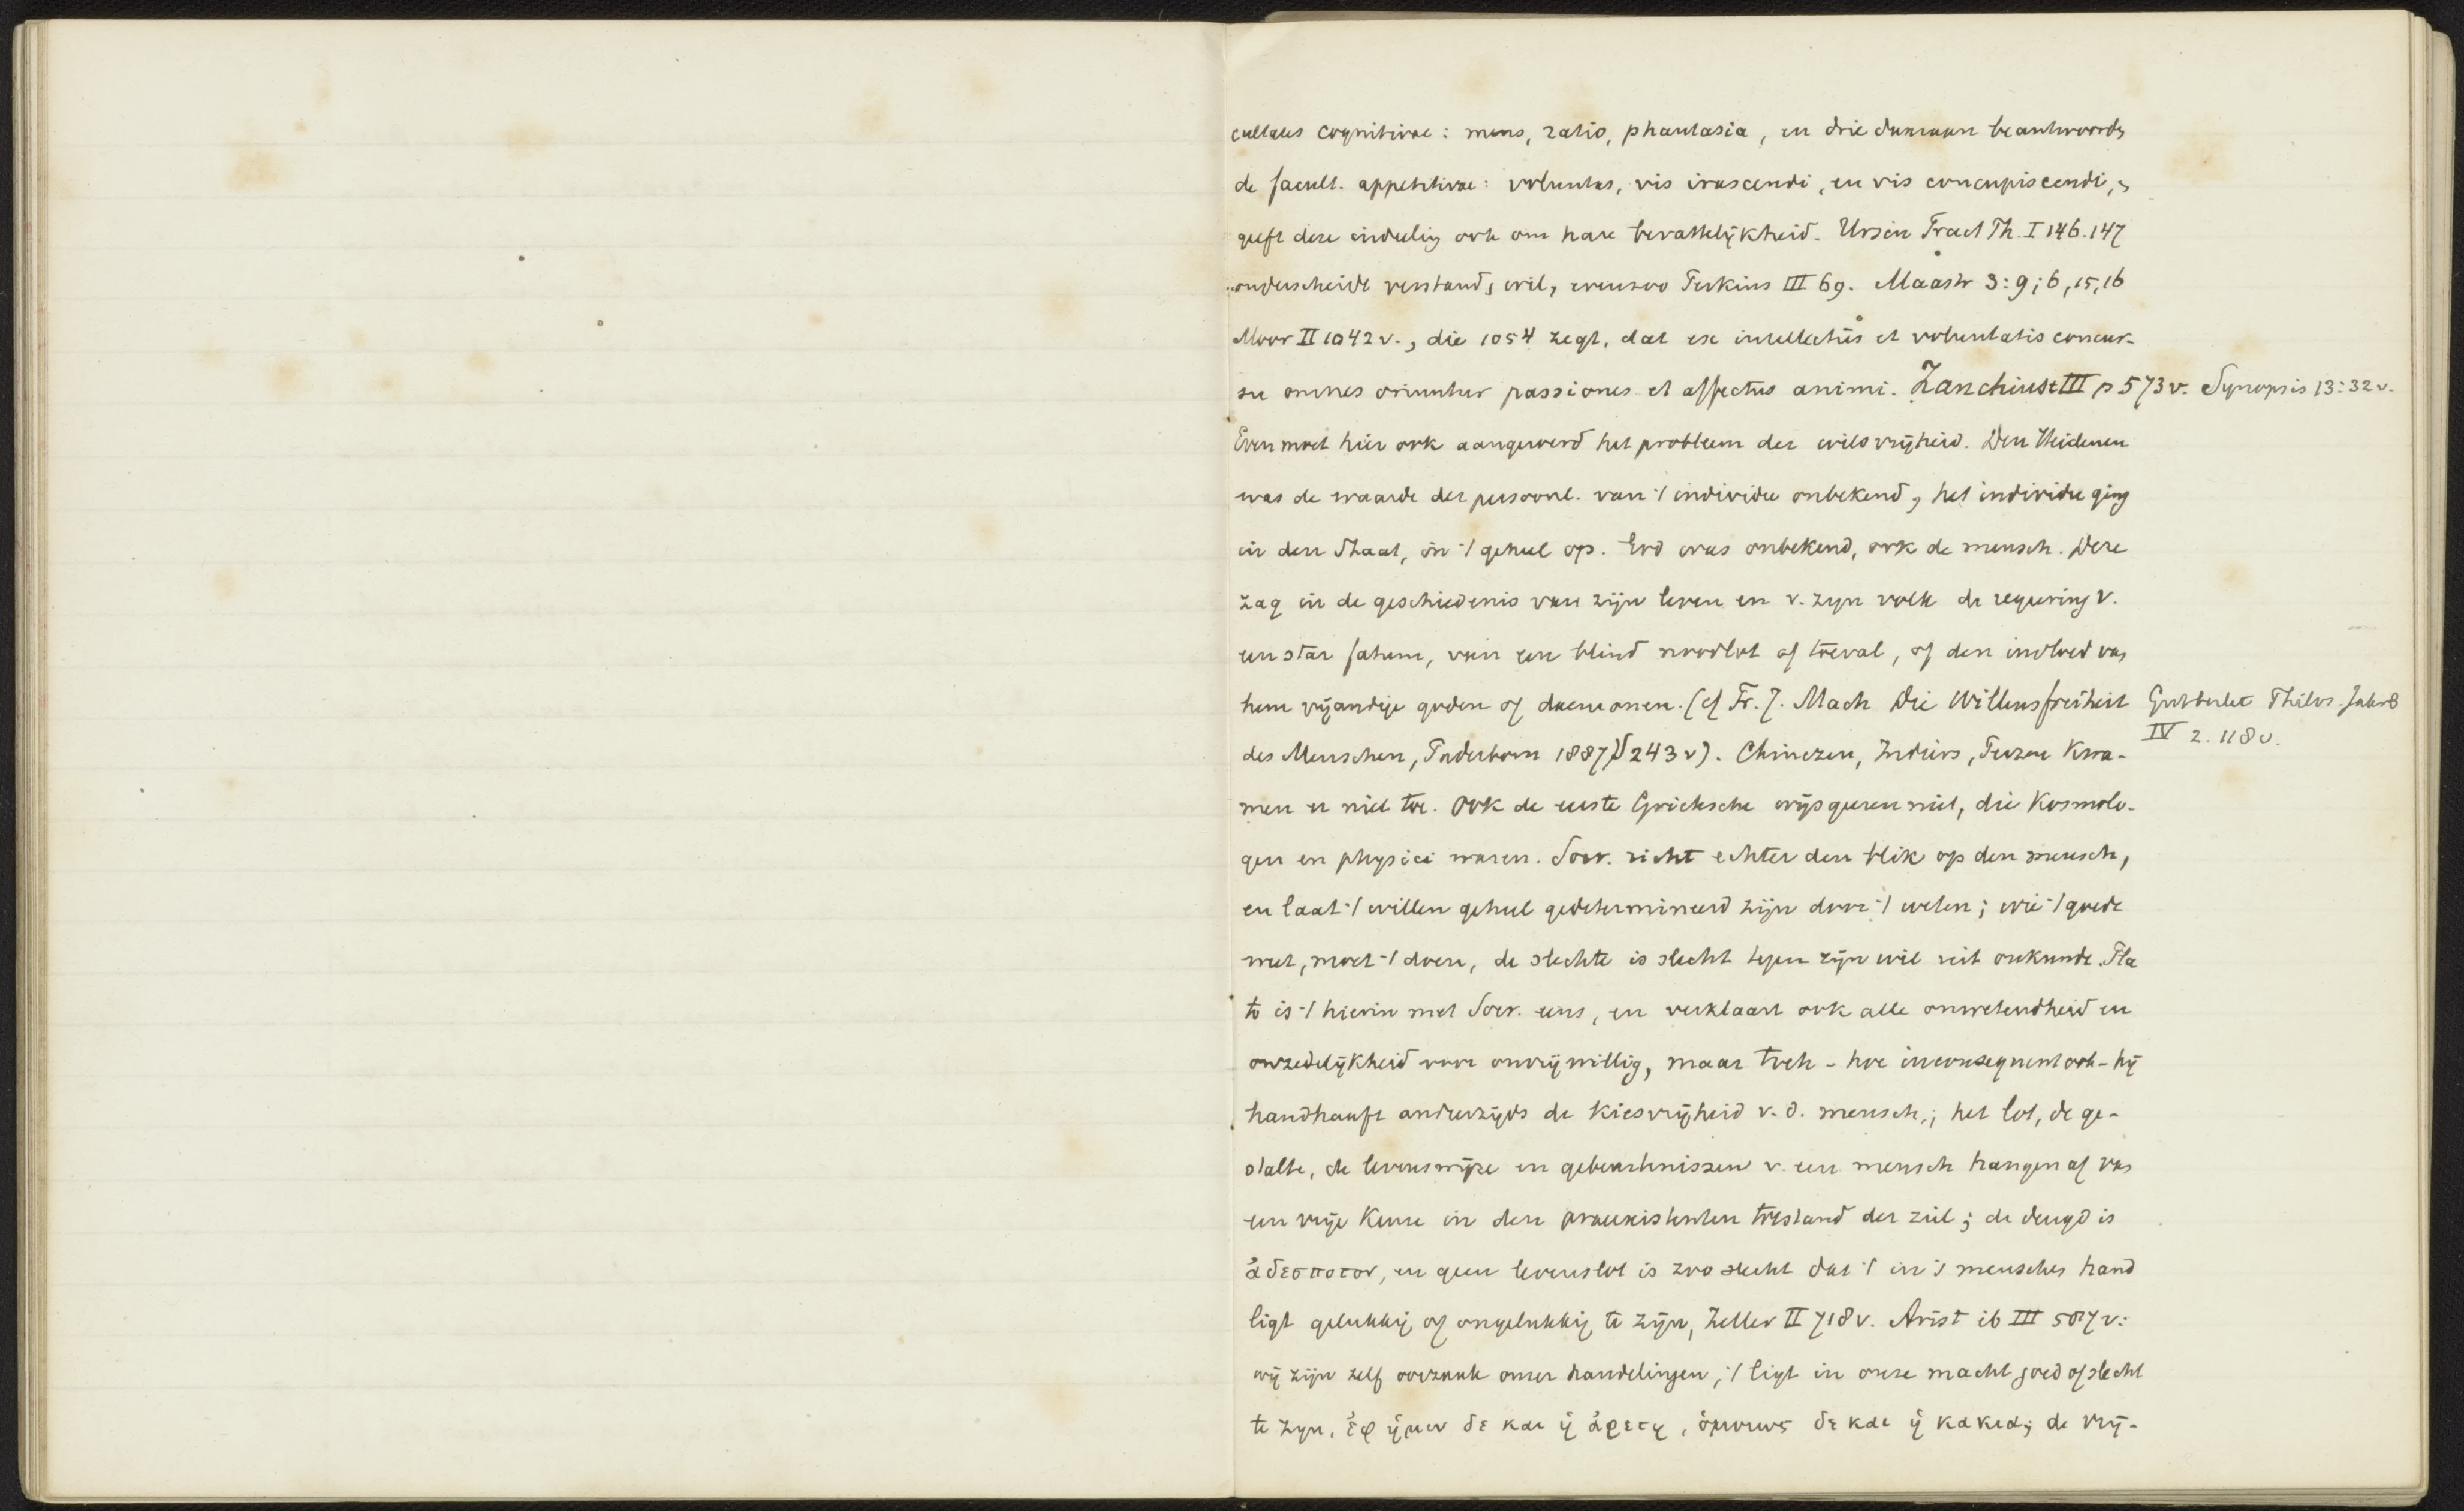 cultates cognitivae: mens, ratio, phantasia, en drie daaraan beantwoorde
de facult. appetitivae: voluntas, vis irascendi, en vis concupiscendi, en
geeft deze indeeling ook om hare bevattelijkheid. Ursin Tract Th. I 146. 147
onderscheidt verstand, wil, evenzoo Perkins III 69. Maastr 3:9; 6, 15, 16
Moor II 1042 v., die 1054 zegt, dat ex intellectûs et voluntatis concur-
su omnes oriuntur passiones et affectus animi. Zanchius t III p 573 v. Synopsis 13:32 v.
Even moet hier ook aangeroerd het probleem der wilsvrijheid. Den Heidenen
was de waarde der persoonl. van 't individu onbekend, het individu ging
in den Staat, in 't geheel op. God was onbekend, ook de mensch. Deze
zag in de geschiedenis van zijn leven en v. zijn volk de regeering v.
een star fatum, van een blind noodlot of toeval, of den invloed van
hem vijandige goden of daemonen. (cf Fr. J. Mach Die Willensfreiheit
des Menschen, Paderborn 1887 S 243 v). Chineezen, Indiërs, Perzen kwa-
Gutberlet Philos. Jahrb
IV 2. 118 v.
men er niet toe. Ook de eerste Grieksche wijsgeeren niet, die kosmolo-
gen en physici waren. Socr. richt echter den blik op den mensch,
en laat 't willen geheel gedetermineerd zijn door 't weten; wie 't goede
weet, moet 't doen, de slechte is slecht tegen zijn wil uit onkunde. Pla
to is 't hierin met Socr. eens, en verklaart ook alle onwetendheid en
onzedelijkheid voor onvrijwillig, maar toch - hoe inconsequent ook - hij
handhaaft anderzijds de kiesvrijheid v. d. mensch,; het lot, de ge-
stalte, de levenswijze en gebeurtenissen v. een mensch hangen af van
een vrije keuze in den praeexistenten toestand der ziel; de deugd is
ἀδεσποτον, en geen levenslot is zoo slecht dat 't in 's menschen hand
ligt gelukkig of ongelukkig te zijn, Zeller II 718 v. Arist ib III 587 v:
wij zijn zelf oorzaak onzer handelingen, 't ligt in onze macht goed of slecht
te zijn, ἐφ ἡμιν δε και ἡ ἀρετη, ὁμοιως δε και ἡ κακια; de vrij-